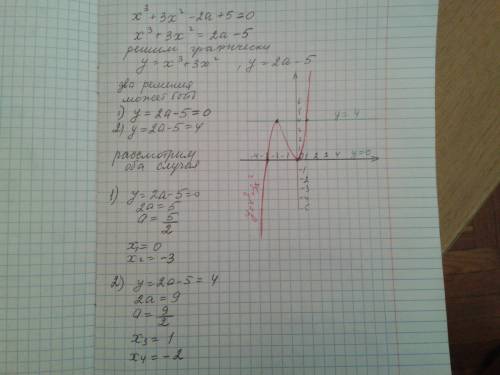 x³+3x²-2a+5=0
x³+3x²=2a-5
решим графически
y=x³+3x² , y=2a-5
два решения
может быть
1) y=2a-5=0
2) y=2a-5=4
рассмотрим
оба случая
1) y=2a-5=0
2a=5
a=5/2
x₁=0
x₂=-3
2) y=2a-5=4
2a=9
a=9/2
x₃=1
x₄=-2
y=4
y=0
-1
-2
-3
-4